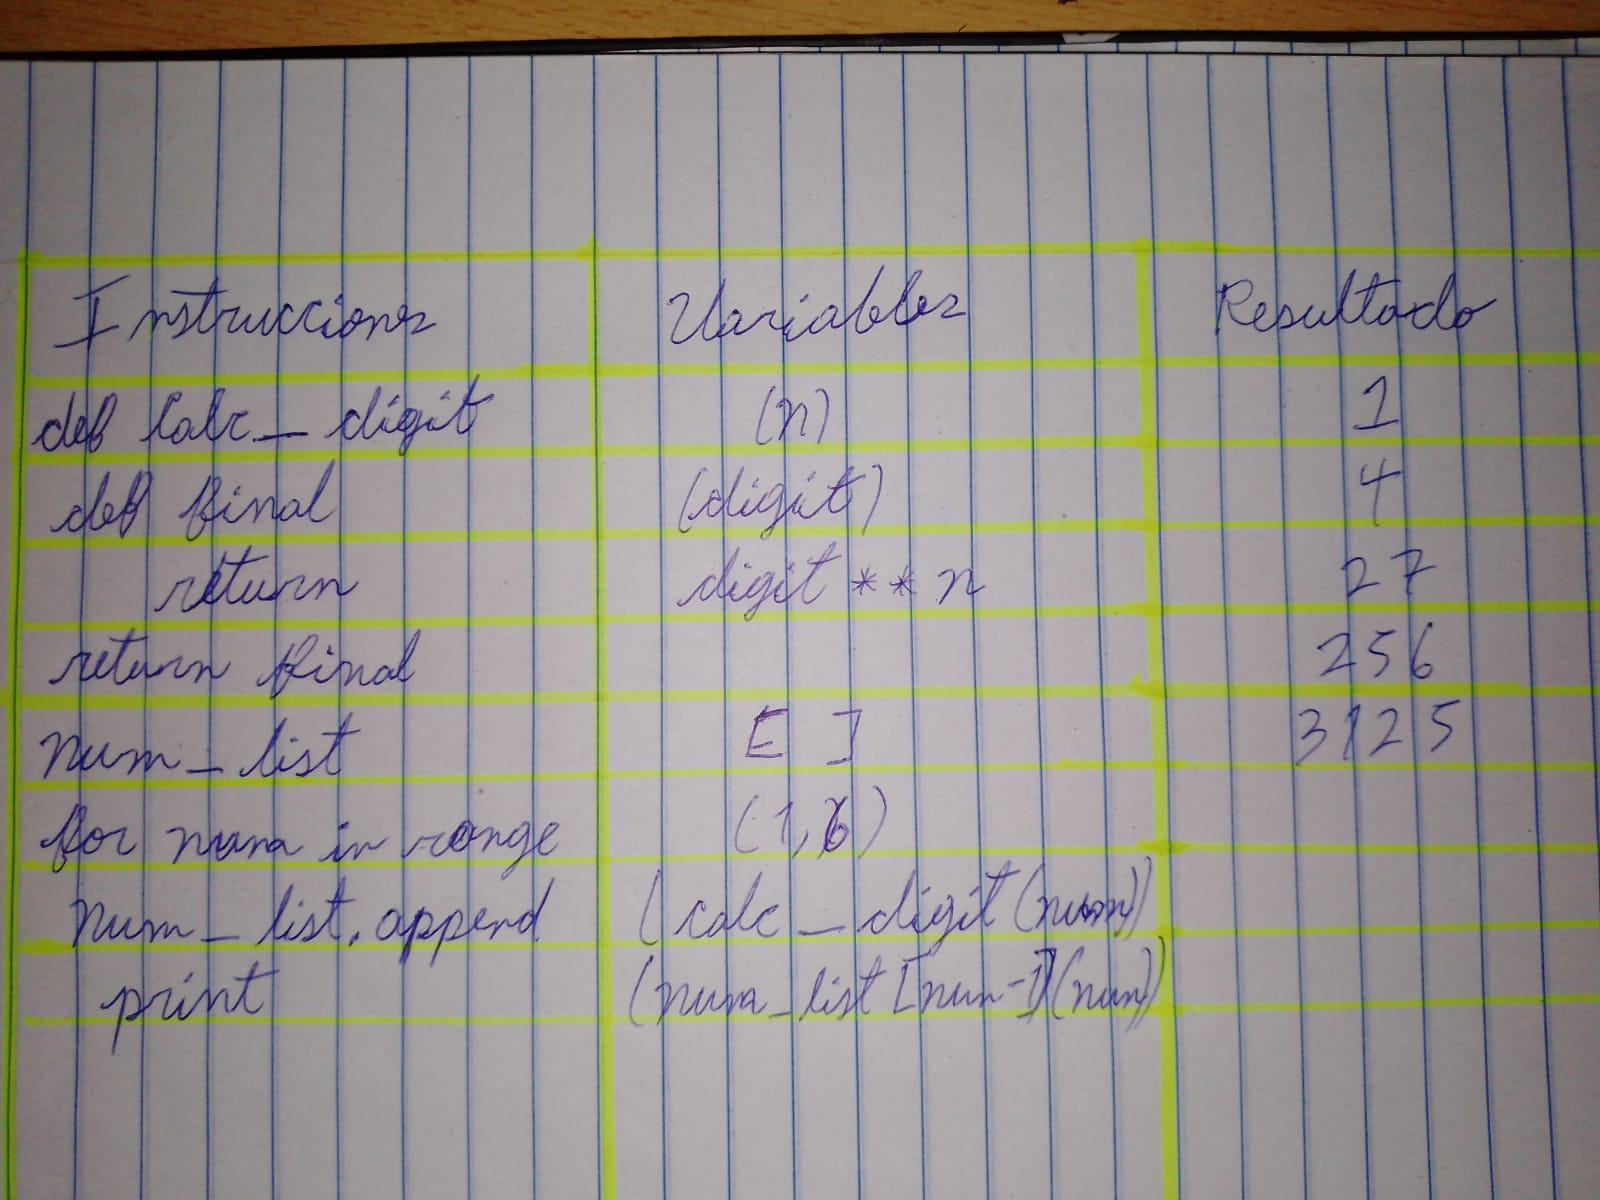 Instrucciones Variables Resultado
def Calc_digit (n) 1
def final (digit) 4
return digit ** n 27
return final 256
Num_list [ ] 3125
for num in range (1,6)
Num_list.append (calc_digit(num))
print (num_list[num-1](num))